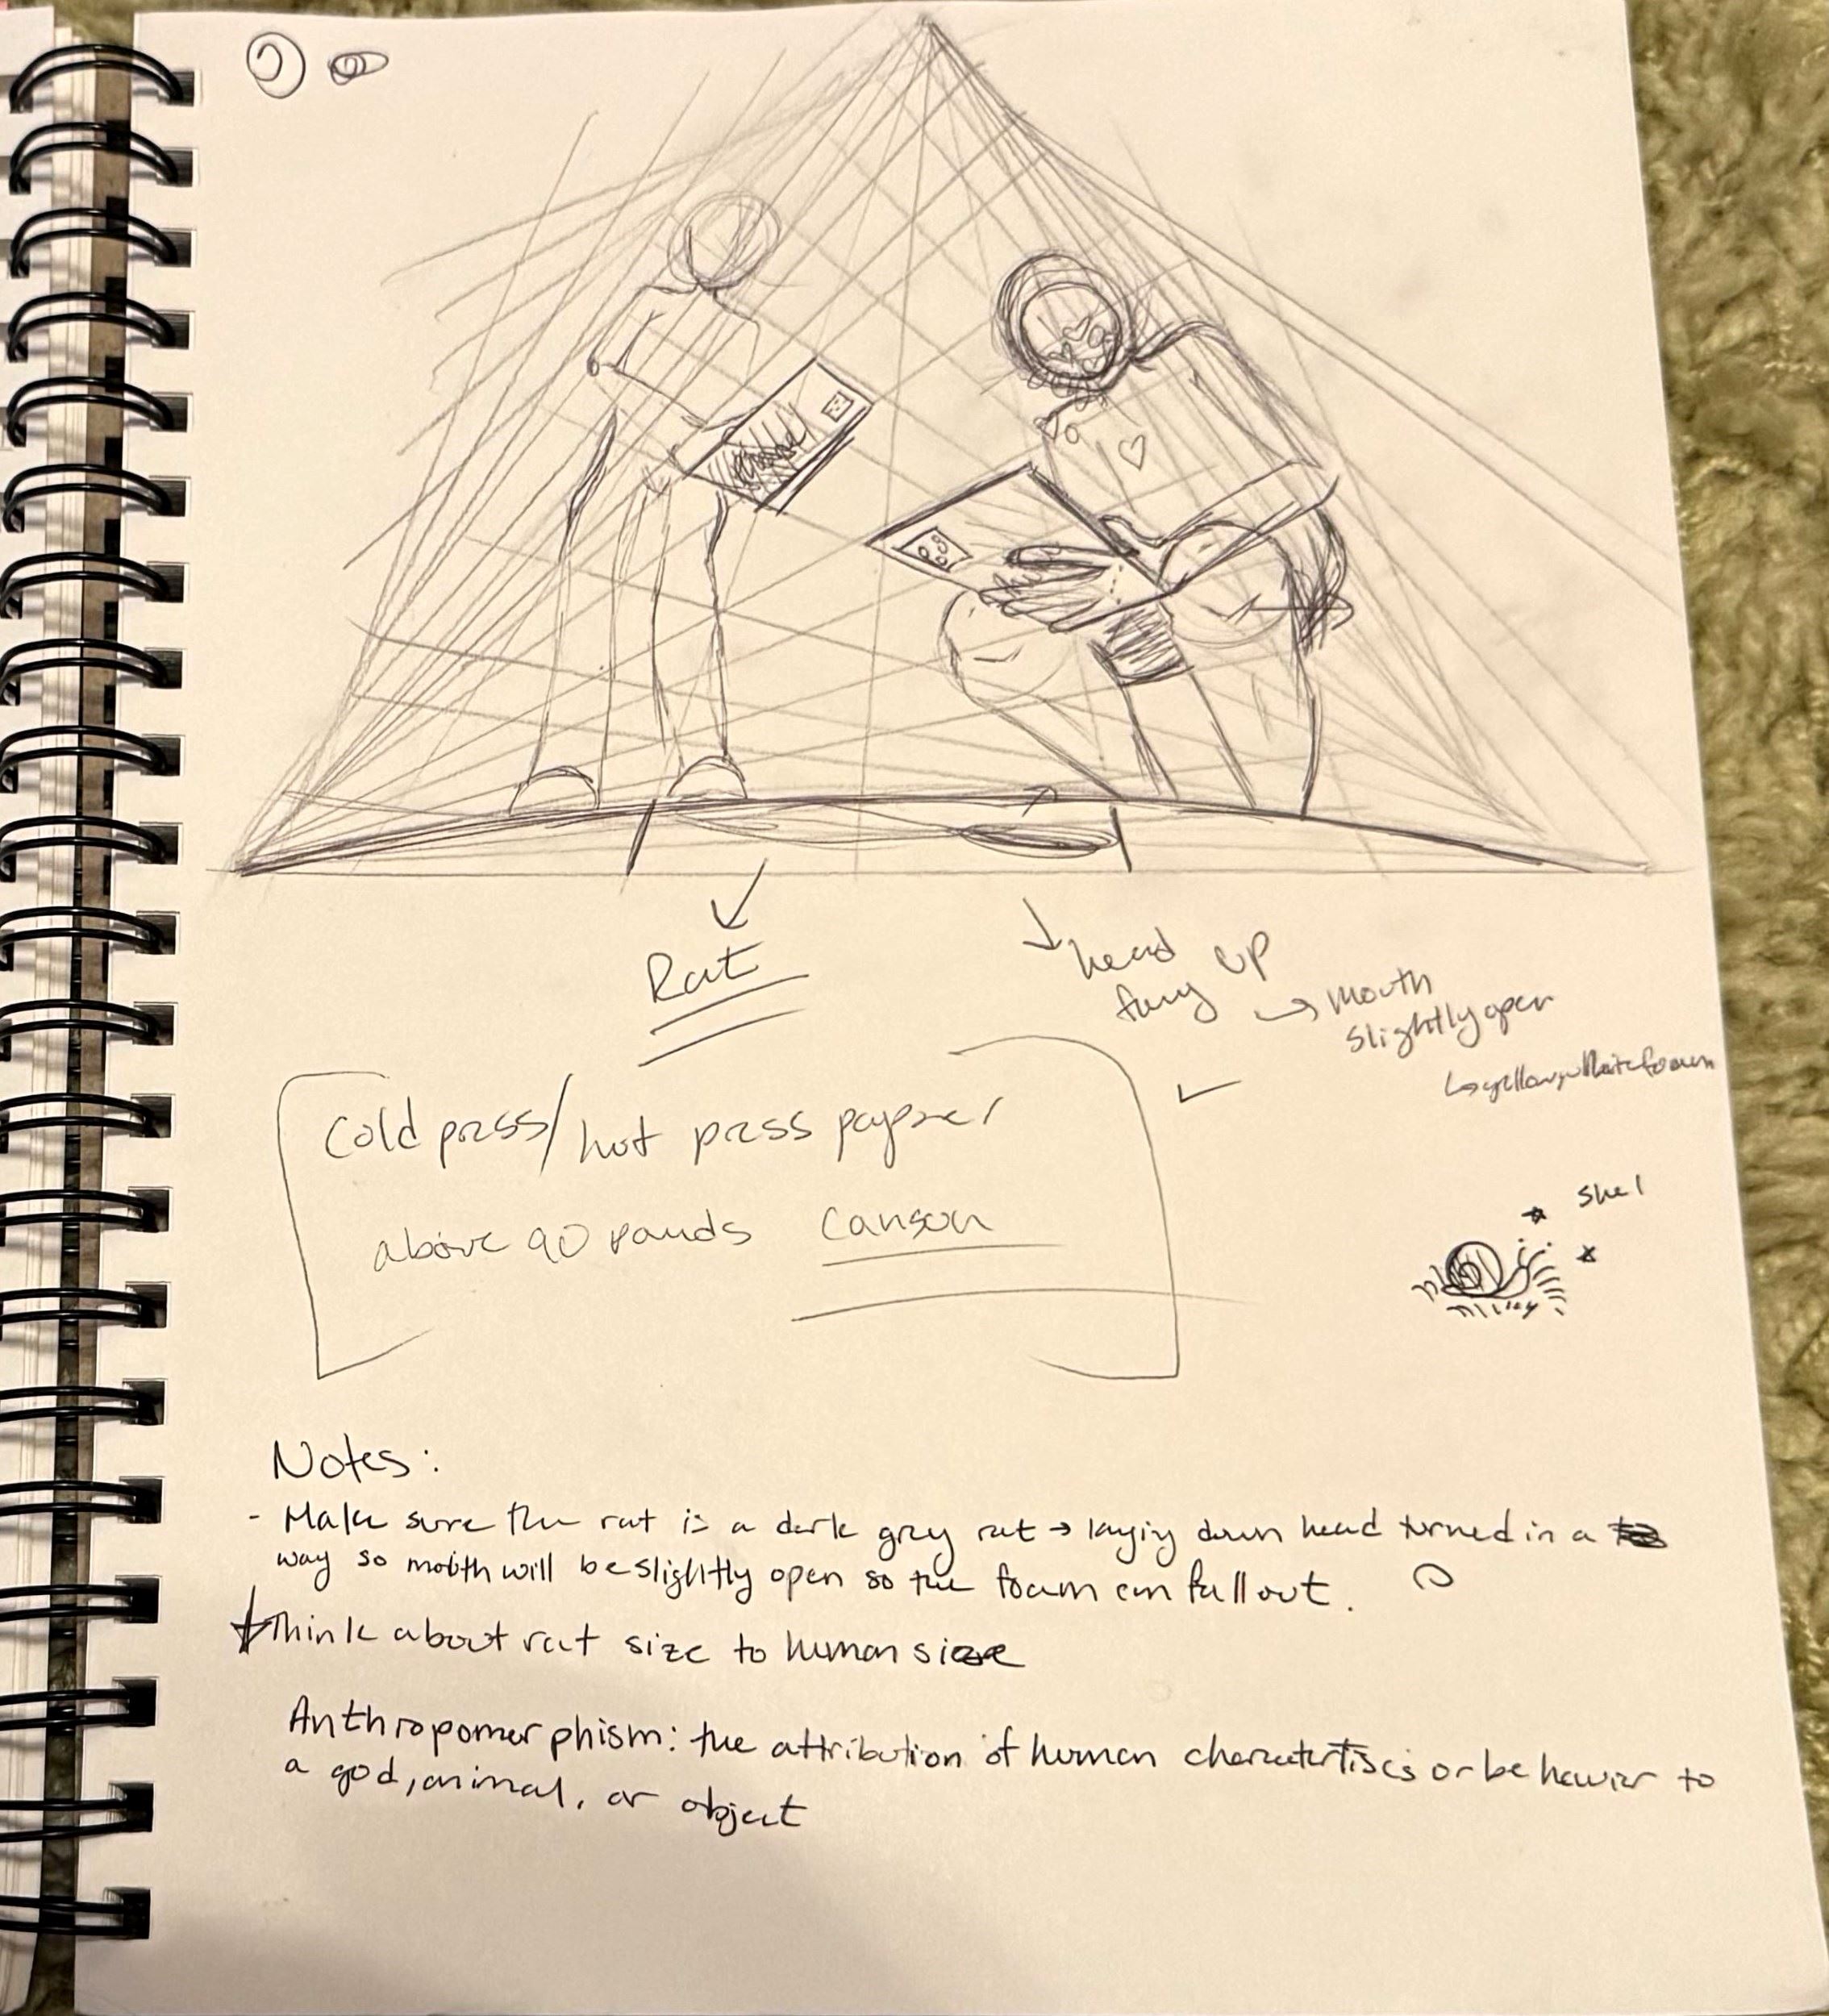 Rat
head up
fury
mouth
slightly open
↳ yellow white foam
Cold press/hot press paper
above 90 pounds Canson
shel
Notes:
- Make sure the rat is a dark grey rat → laying down head turned in a
way so mouth will be slightly open so the foam can fall out.
Think about rat size to human size
Anthropomorphism: the attribution of human charactertiscs or behavior to
a god, animal, or object